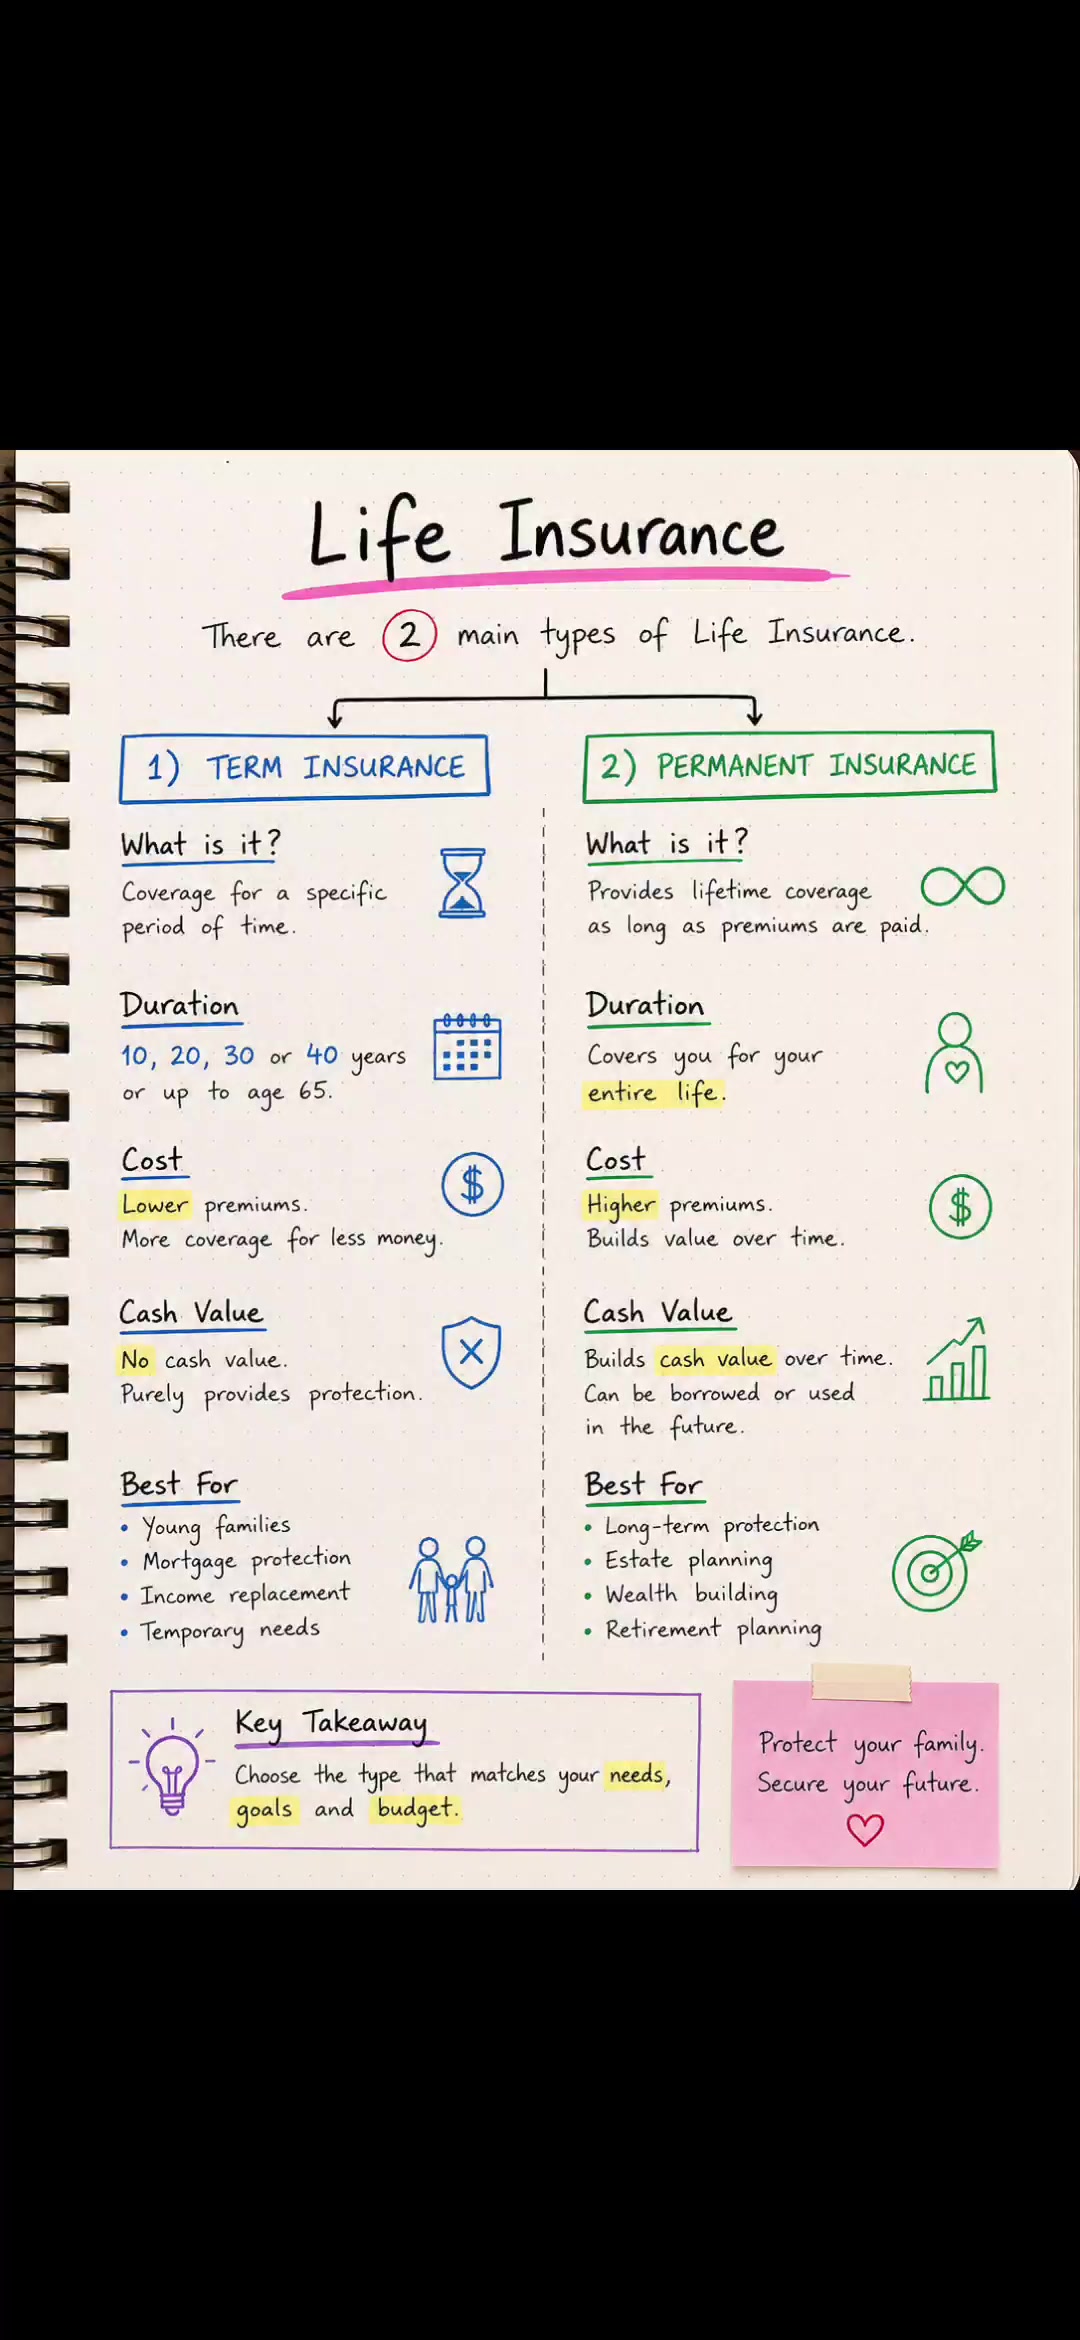 Life Insurance
There are 2 main types of Life Insurance.
1) TERM INSURANCE
What is it?
Coverage for a specific
period of time.
Duration
10, 20, 30 or 40 years
or up to age 65.
Cost
Lower premiums.
More coverage for less money.
Cash Value
No cash value.
Purely provides protection.
Best For
• Young families
• Mortgage protection
• Income replacement
• Temporary needs
2) PERMANENT INSURANCE
What is it?
Provides lifetime coverage
as long as premiums are paid.
Duration
Covers you for your
entire life.
Cost
Higher premiums.
Builds value over time.
Cash Value
Builds cash value over time.
Can be borrowed or used
in the future.
Best For
• Long-term protection
• Estate planning
• Wealth building
• Retirement planning
Key Takeaway
Choose the type that matches your needs,
goals and budget.
Protect your family.
Secure your future.